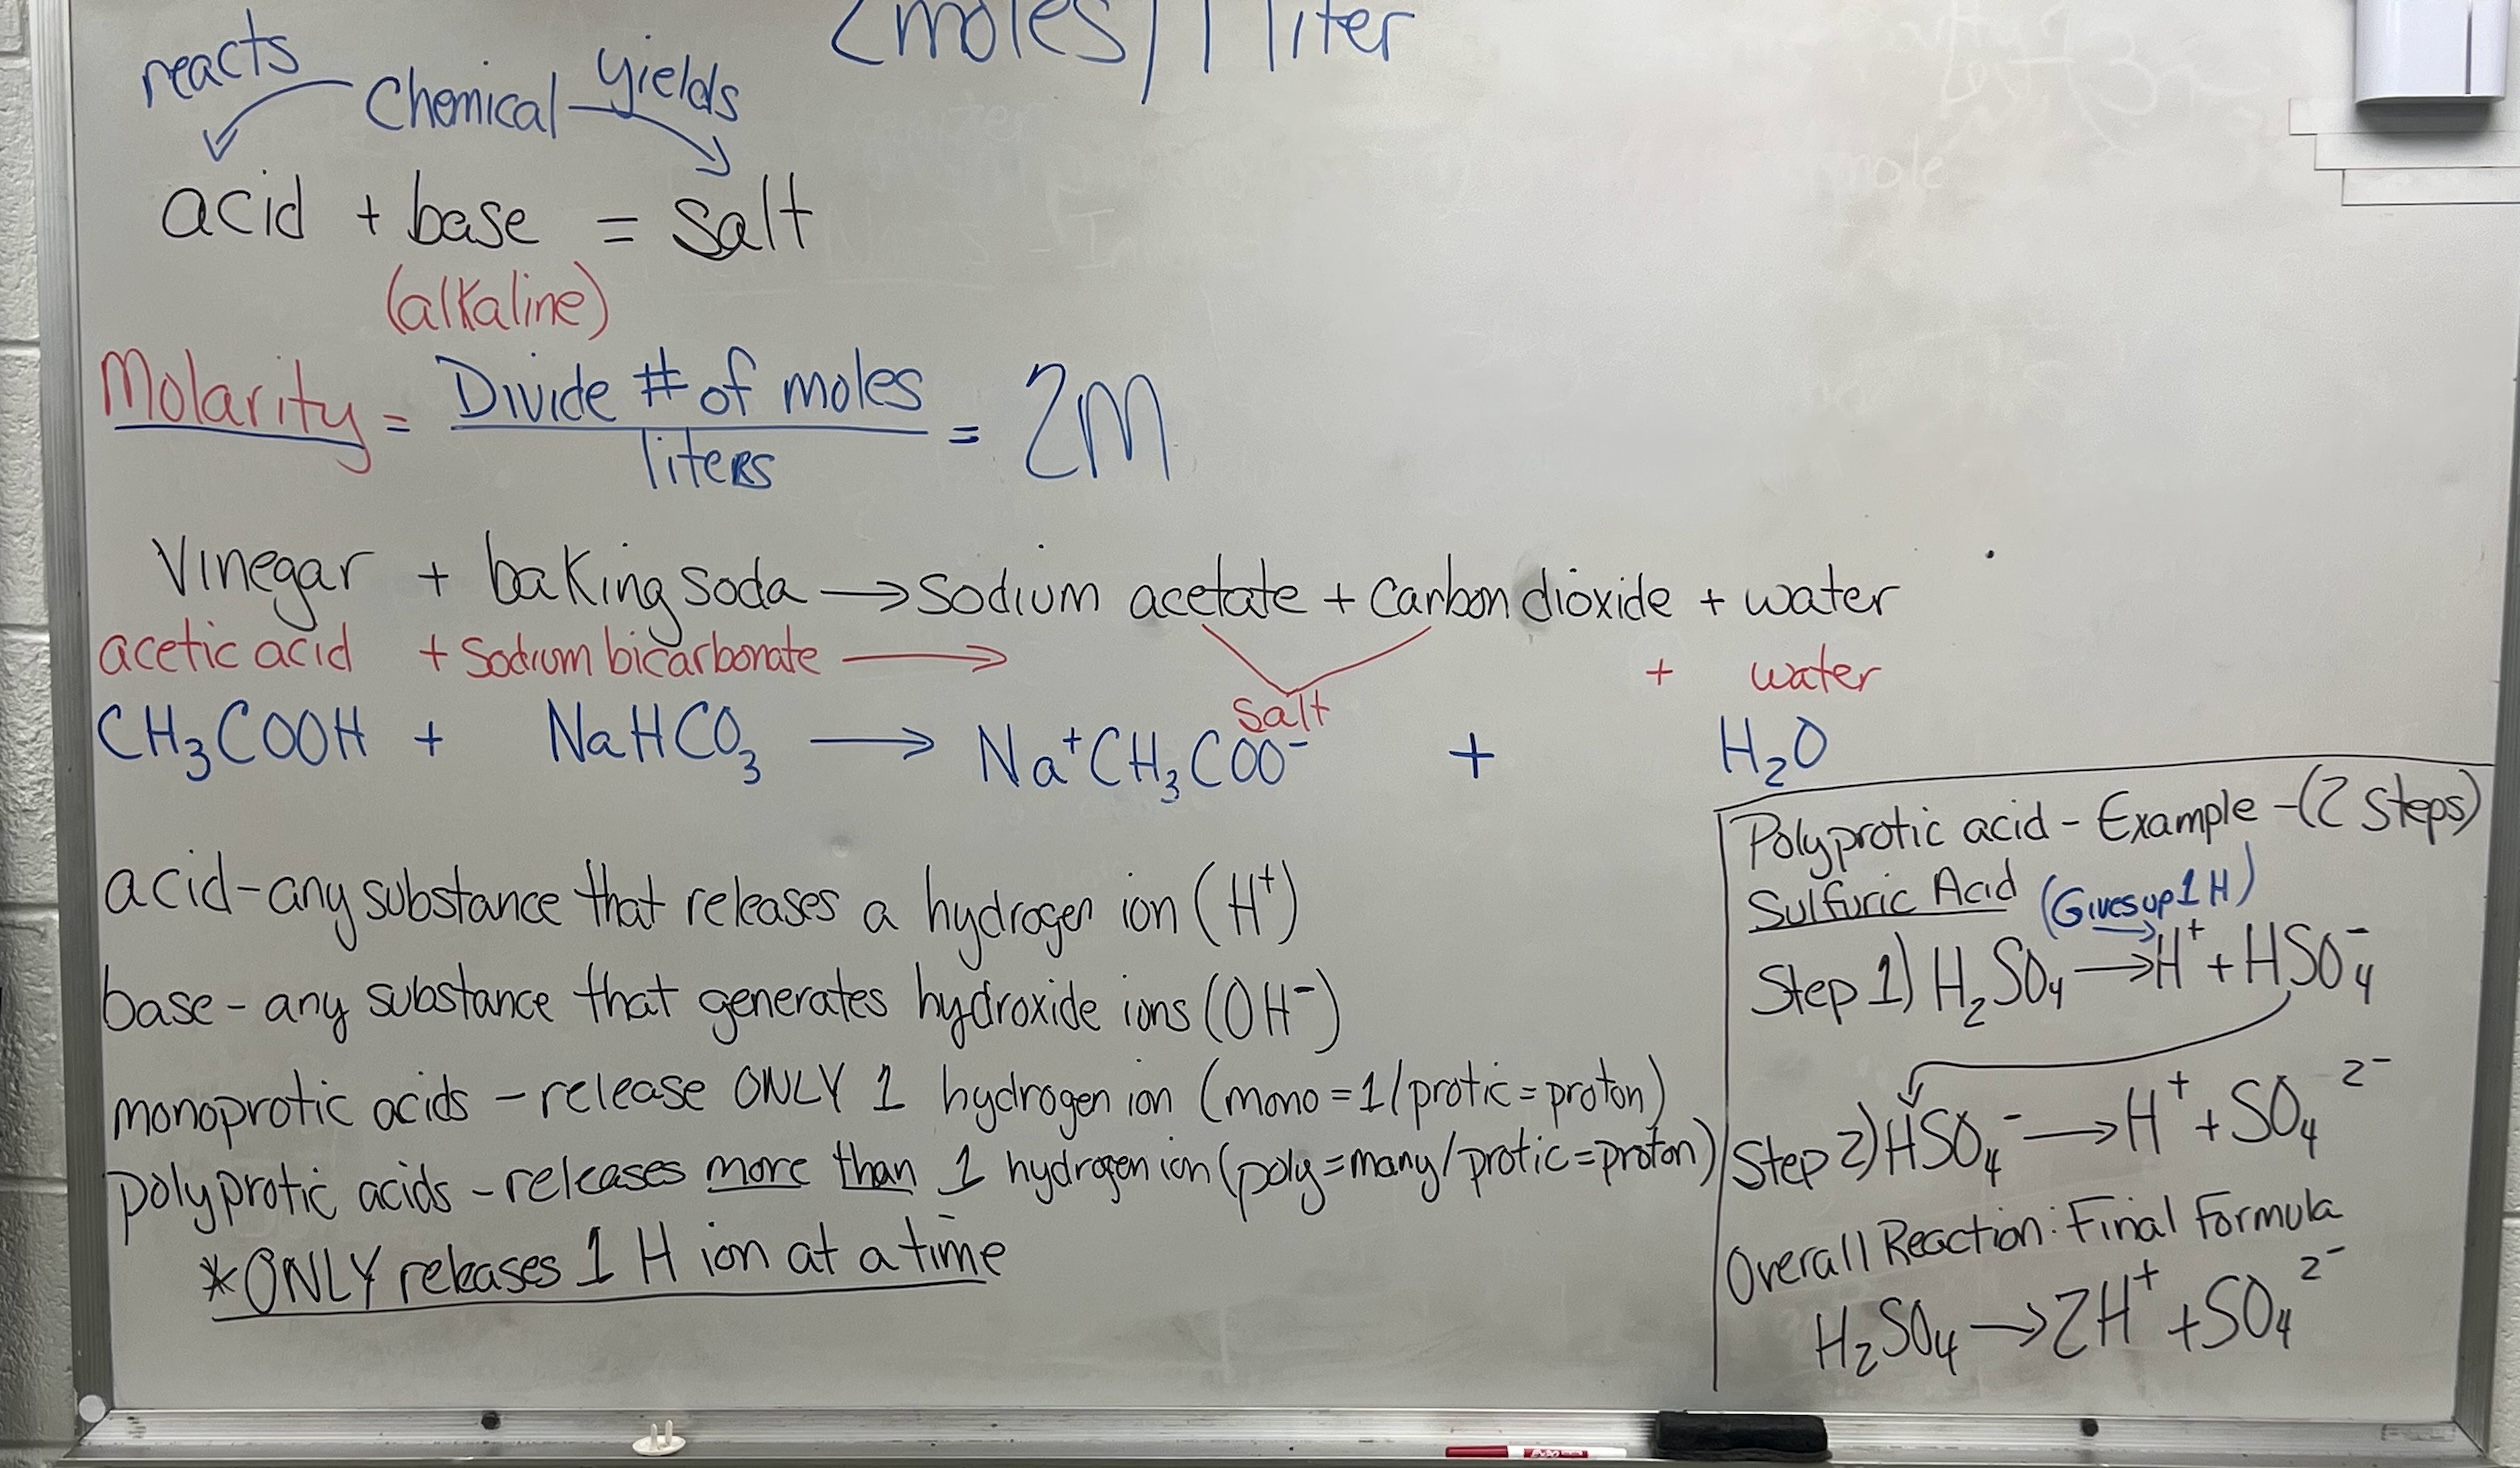 2 moles / 1 liter
reacts Chemical yields
acid + base = salt
(alkaline)
Molarity = Divide # of moles = 2M
liters
Vinegar + baking soda → sodium acetate + carbon dioxide + water
acetic acid + sodium bicarbonate → salt + water
CH₃COOH + NaHCO₃ → Na⁺CH₃COO⁻ + H₂O
acid - any substance that releases a hydrogen ion (H⁺)
base - any substance that generates hydroxide ions (OH⁻)
monoprotic acids - release ONLY 1 hydrogen ion (mono = 1 / protic = proton)
polyprotic acids - releases more than 1 hydrogen ion (poly = many / protic = proton)
*ONLY releases 1 H ion at a time
Polyprotic acid - Example - (2 Steps)
Sulfuric Acid (Gives up 1 H)
Step 1) H₂SO₄ → H⁺ + HSO₄⁻
Step 2) HSO₄⁻ → H⁺ + SO₄²⁻
Overall Reaction: Final Formula
H₂SO₄ → 2H⁺ + SO₄²⁻
EXPO